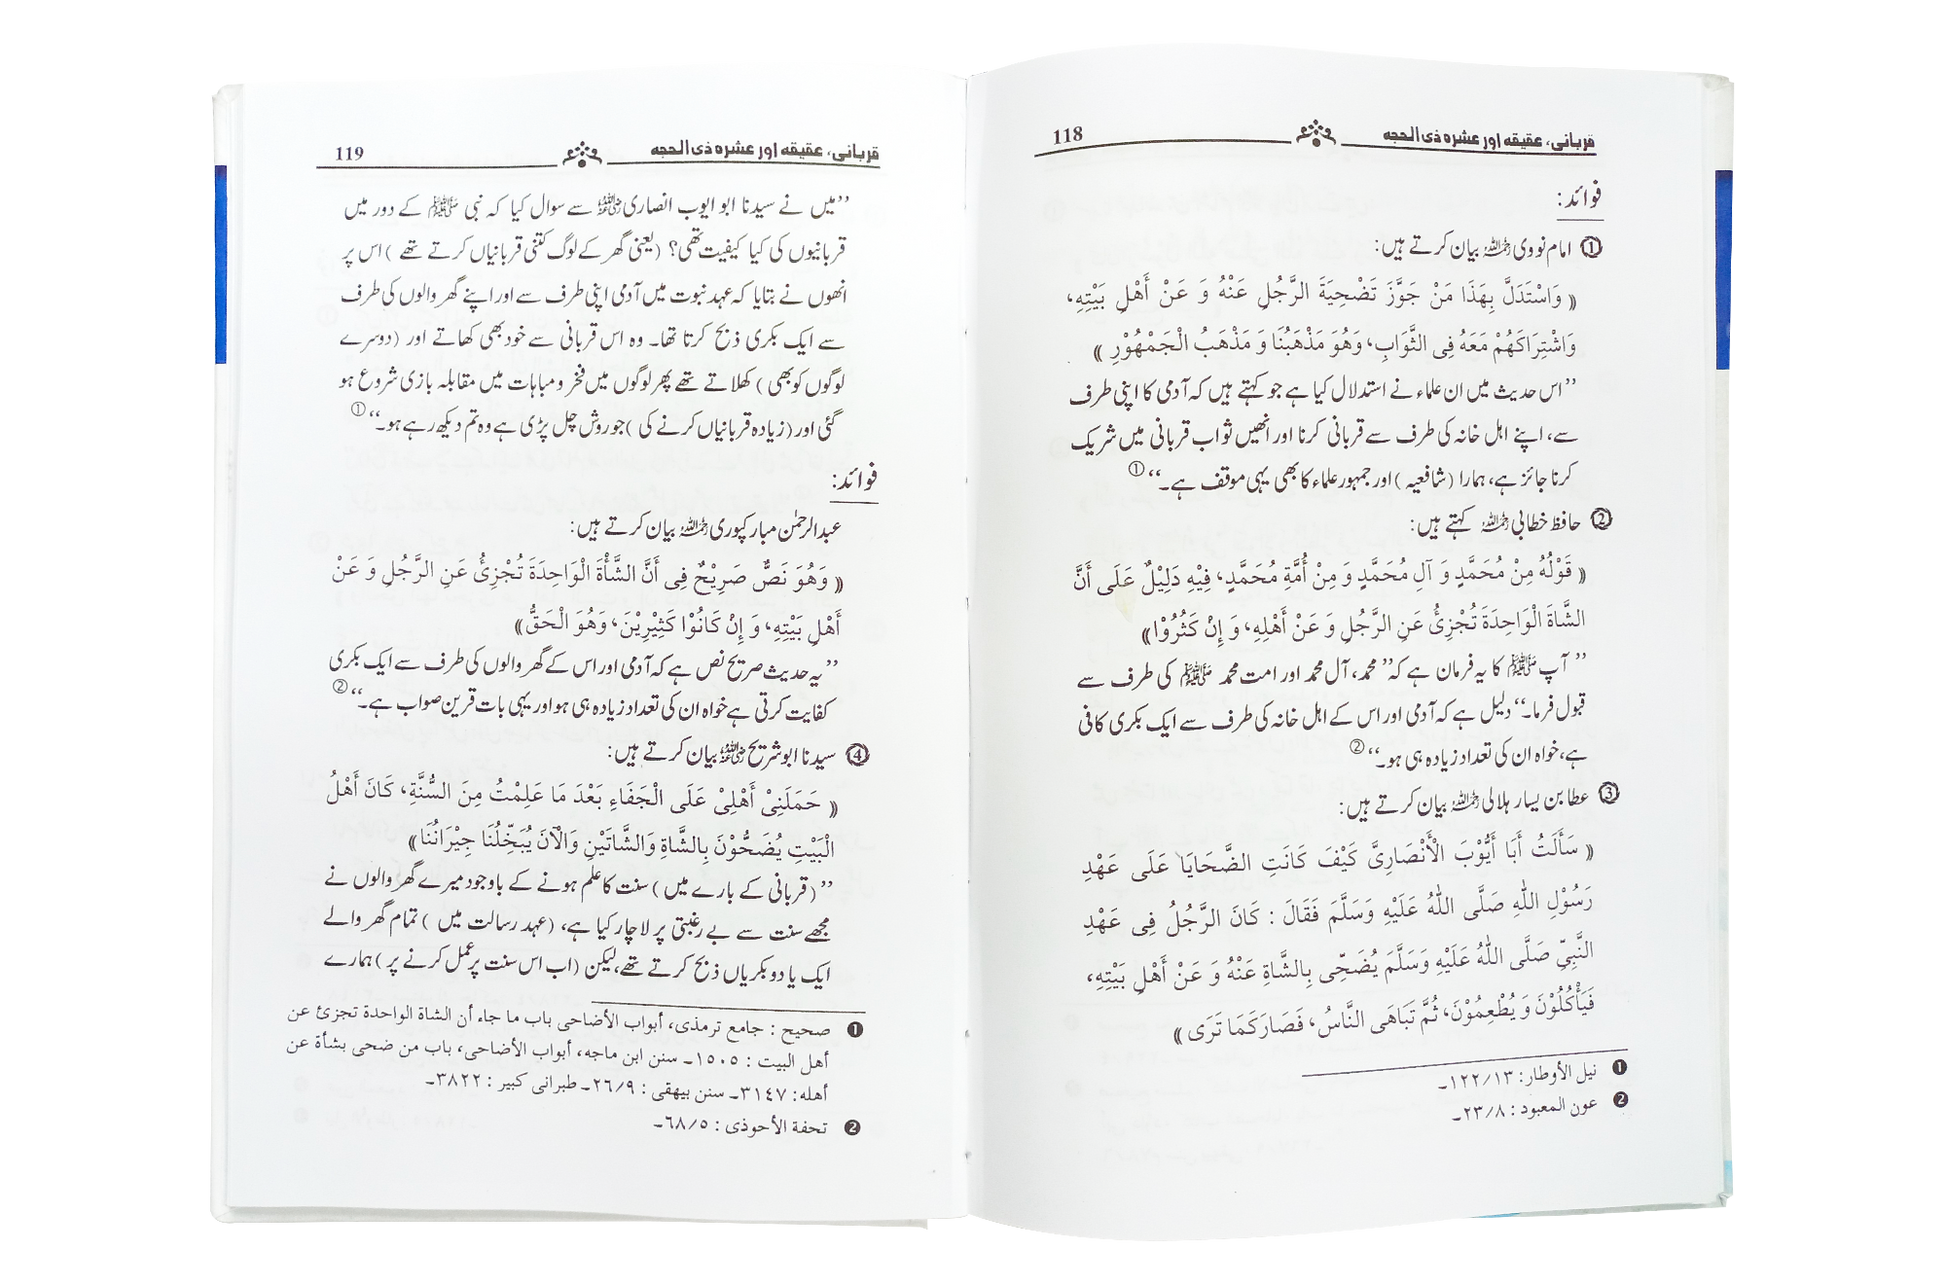 قربانی، عقیقہ اور عشرہ ذی الحجہ 118
فوائد:
① امام نووی رحمہ اللہ بیان کرتے ہیں:
﴿ وَاسْتَدَلَّ بِهَذَا مَنْ جَوَّزَ تَضْحِيَةَ الرَّجُلِ عَنْهُ وَ عَنْ أَهْلِ بَيْتِهِ،
وَاشْتِرَاكَهُمْ مَعَهُ فِی الثَّوَابِ، وَهُوَ مَذْهَبُنَا وَ مَذْهَبُ الْجَمْهُوْرِ ﴾
’’اس حدیث میں ان علماء نے استدلال کیا ہے جو کہتے ہیں کہ آدمی کا اپنی طرف
سے، اپنے اہل خانہ کی طرف سے قربانی کرنا اور انھیں ثواب قربانی میں شریک
کرنا جائز ہے، ہمارا (شافعیہ) اور جمہور علماء کا بھی یہی موقف ہے۔‘‘①
② حافظ خطابی رحمہ اللہ کہتے ہیں:
﴿ قَوْلُهُ مِنْ مُحَمَّدٍ وَ آلِ مُحَمَّدٍ وَ مِنْ أُمَّةِ مُحَمَّدٍ، فِيْهِ دَلِيْلٌ عَلَى أَنَّ
الشَّاةَ الْوَاحِدَةَ تُجْزِئُ عَنِ الرَّجُلِ وَ عَنْ أَهْلِهِ، وَ إِنْ كَثُرُوْا﴾
’’آپ ﷺ کا یہ فرمان ہے کہ ’’محمد، آل محمد اور امت محمد ﷺ کی طرف سے
قبول فرما۔‘‘ دلیل ہے کہ آدمی اور اس کے اہل خانہ کی طرف سے ایک بکری کافی
ہے، خواہ ان کی تعداد زیادہ ہی ہو۔‘‘②
③ عطا بن یسار ہلالی رحمہ اللہ بیان کرتے ہیں:
﴿ سَأَلْتُ أَبَا أَيُّوْبَ الْأَنْصَارِیَّ كَيْفَ كَانَتِ الضَّحَايَا عَلَى عَهْدِ
رَسُوْلِ اللّٰهِ صَلَّى اللّٰهُ عَلَيْهِ وَسَلَّمَ فَقَالَ : كَانَ الرَّجُلُ فِی عَهْدِ
النَّبِیِّ صَلَّى اللّٰهُ عَلَيْهِ وَسَلَّمَ يُضَحِّی بِالشَّاةِ عَنْهُ وَ عَنْ أَهْلِ بَيْتِهِ،
فَيَأْكُلُوْنَ وَ يُطْعِمُوْنَ، ثُمَّ تَبَاهَى النَّاسُ، فَصَارَ كَمَا تَرَى ﴾
❶ نیل الأوطار: ١٢٢/١٣۔
❷ عون المعبود : ٢٣/٨۔
قربانی، عقیقہ اور عشرہ ذی الحجہ 119
’’میں نے سیدنا ابو ایوب انصاری رضی اللہ عنہ سے سوال کیا کہ نبی ﷺ کے دور میں
قربانیوں کی کیا کیفیت تھی؟ (یعنی گھر کے لوگ کتنی قربانیاں کرتے تھے) اس پر
انھوں نے بتایا کہ عہد نبوت میں آدمی اپنی طرف سے اور اپنے گھر والوں کی طرف
سے ایک بکری ذبح کرتا تھا۔ وہ اس قربانی سے خود بھی کھاتے اور (دوسرے
لوگوں کو بھی) کھلاتے تھے پھر لوگوں میں فخر و مباہات میں مقابلہ بازی شروع ہو
گئی اور (زیادہ قربانیاں کرنے کی) جو روش چل پڑی ہے وہ تم دیکھ رہے ہو۔‘‘①
فوائد:
عبدالرحمٰن مبارکپوری رحمہ اللہ بیان کرتے ہیں:
﴿ وَهُوَ نَصٌّ صَرِيْحٌ فِی أَنَّ الشَّأْةَ الْوَاحِدَةَ تُجْزِئُ عَنِ الرَّجُلِ وَ عَنْ
أَهْلِ بَيْتِهِ، وَ إِنْ كَانُوْا كَثِيْرِيْنَ، وَهُوَ الْحَقُّ﴾
’’یہ حدیث صریح نص ہے کہ آدمی اور اس کے گھر والوں کی طرف سے ایک بکری
کفایت کرتی ہے خواہ ان کی تعداد زیادہ ہی ہو اور یہی بات قرین صواب ہے۔‘‘②
④ سیدنا ابو شریح رضی اللہ عنہ بیان کرتے ہیں:
﴿ حَمَلَنِیْ أَهْلِیْ عَلَى الْجَفَاءِ بَعْدَ مَا عَلِمْتُ مِنَ السُّنَّةِ، كَانَ أَهْلُ
الْبَيْتِ يُضَحُّوْنَ بِالشَّاةِ وَالشَّاتَيْنِ وَالْآنَ يُبَخِّلُنَا جِيْرَانُنَا﴾
’’(قربانی کے بارے میں) سنت کا علم ہونے کے باوجود میرے گھر والوں نے
مجھے سنت سے بے رغبتی پر لاچار کیا ہے، (عہد رسالت میں) تمام گھر والے
ایک یا دو بکریاں ذبح کرتے تھے، لیکن (اب اس سنت پر عمل کرنے پر) ہمارے
❶ صحیح : جامع ترمذی، أبواب الأضاحی باب ما جاء أن الشاة الواحدة تجزئ عن
أهل البيت : ١٥٠٥۔ سنن ابن ماجه، أبواب الأضاحی، باب من ضحى بشأة عن
أهله: ٣١٤٧۔ سنن بيهقی : ٢٦/٩۔ طبرانی كبير : ٣٨٢٢۔
❷ تحفة الأحوذی : ٦٨/٥۔